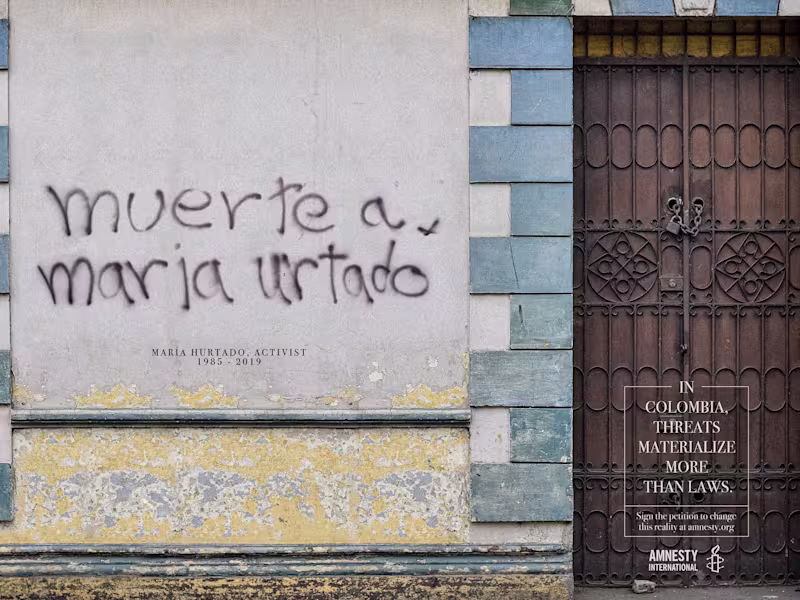 muerte a
maria urtado
MARÍA HURTADO, ACTIVIST
1985 - 2019
IN
COLOMBIA,
THREATS
MATERIALIZE
MORE
THAN LAWS.
Sign the petition to change
this reality at amnesty.org
AMNESTY
INTERNATIONAL